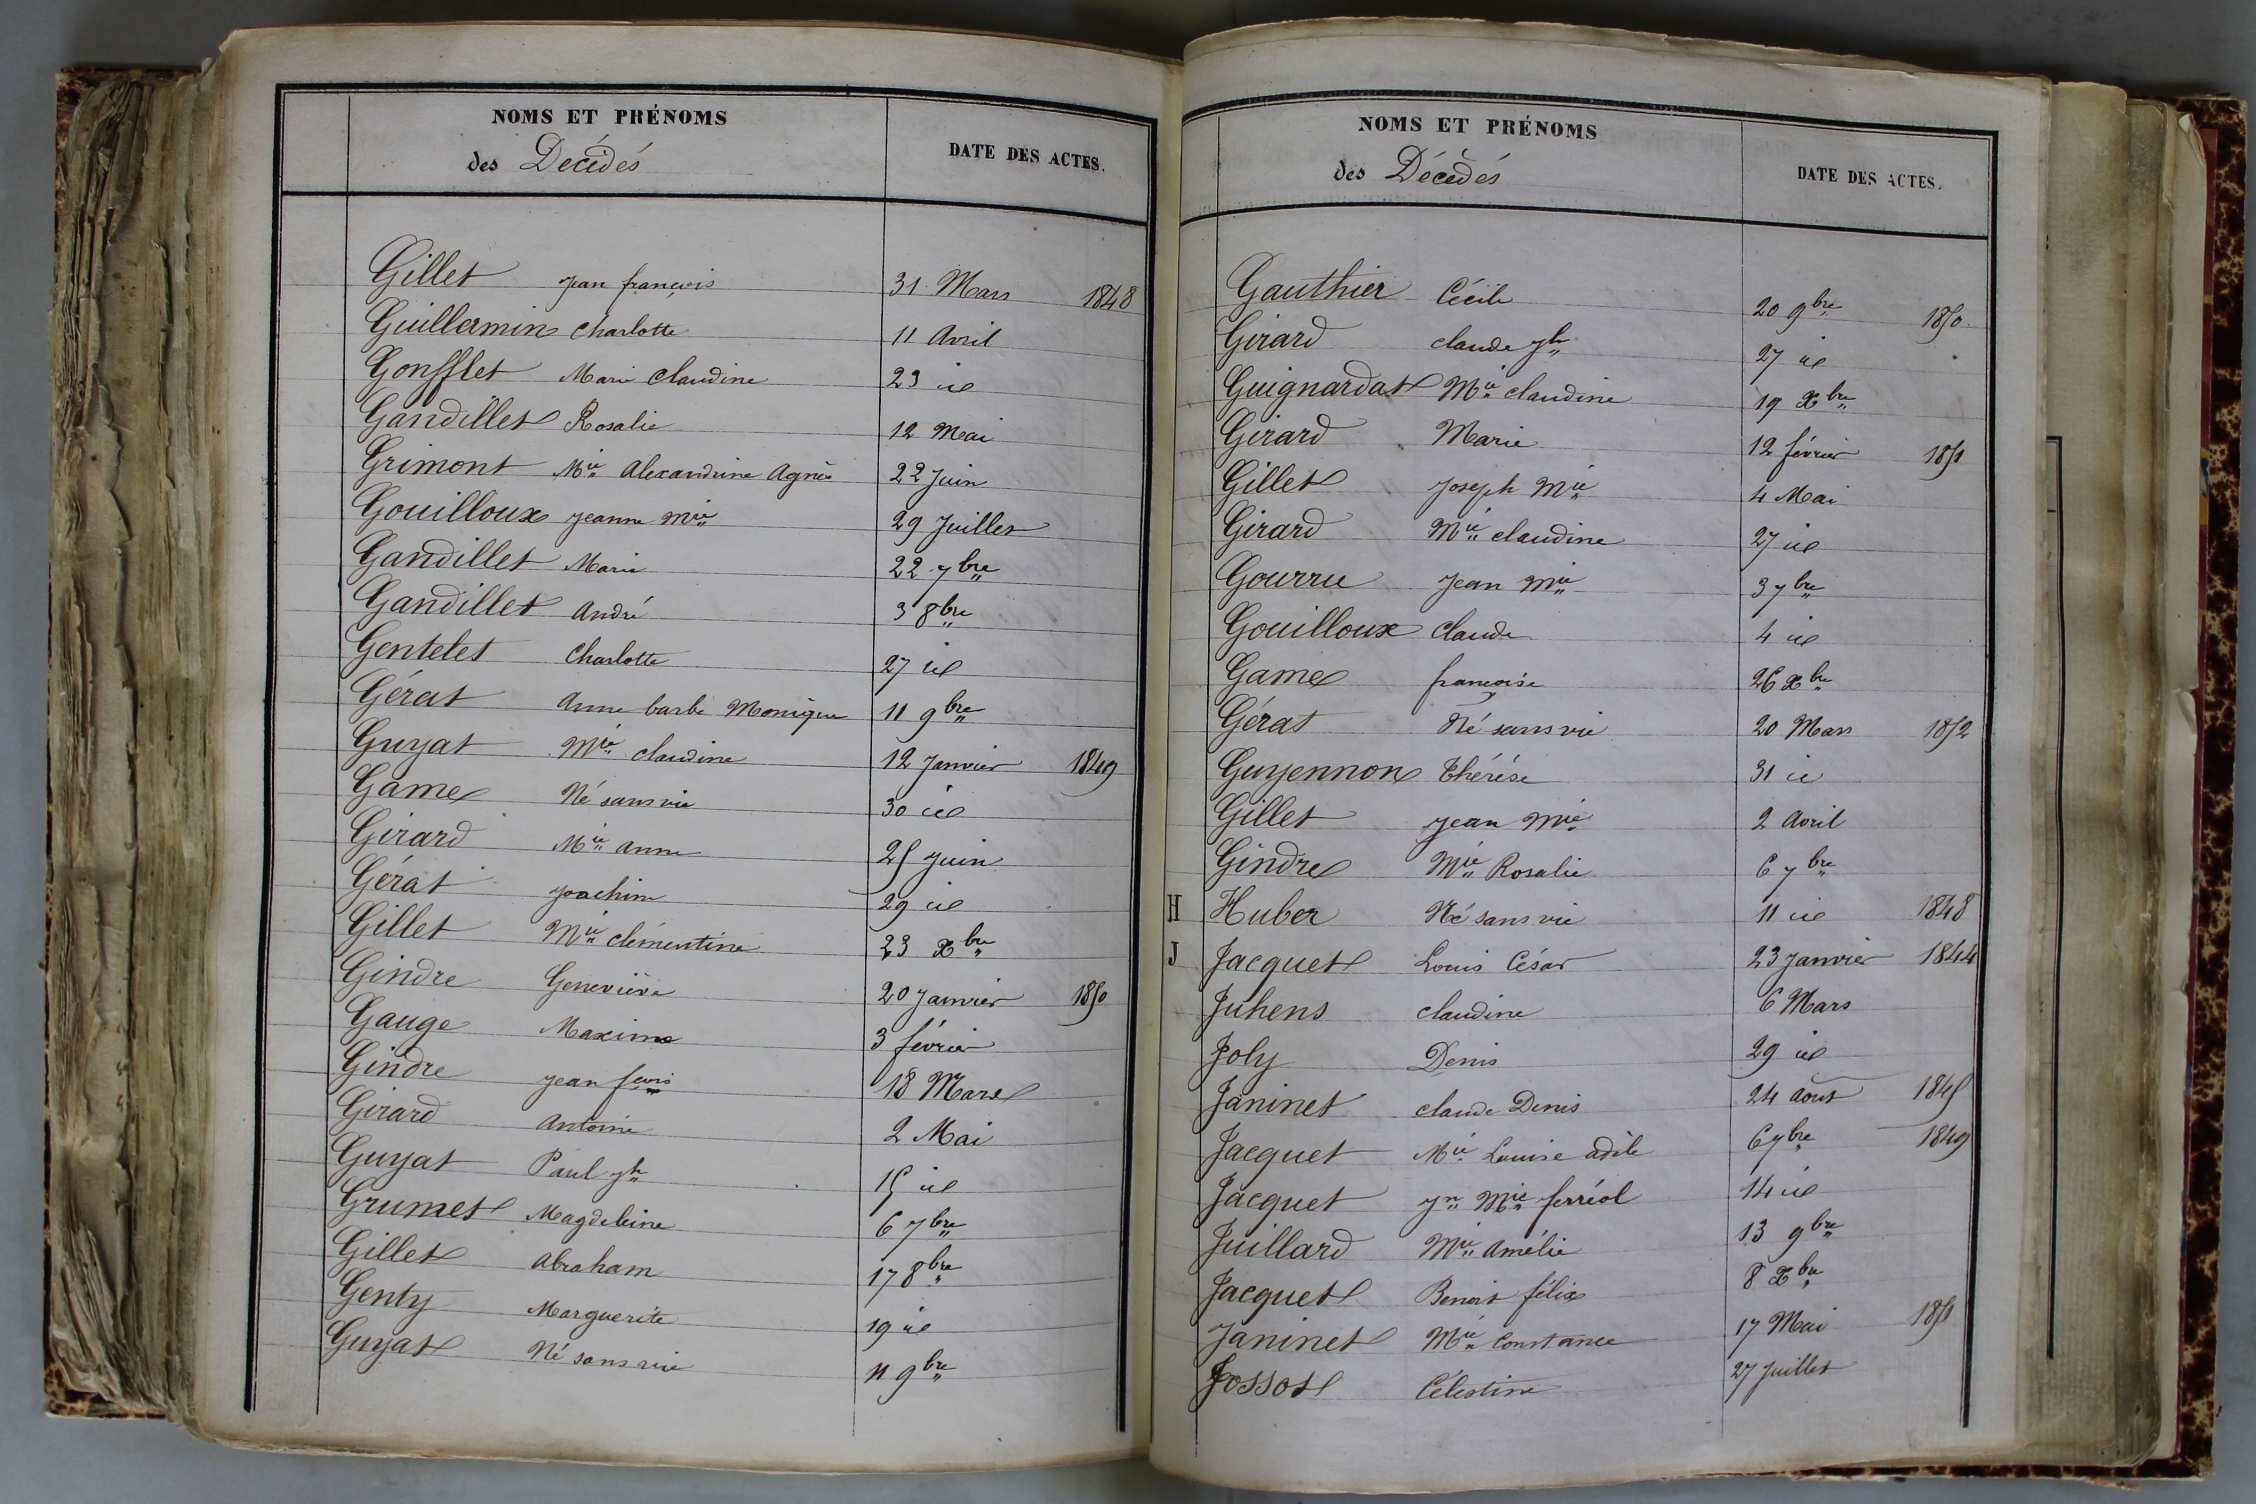 NOMS ET PRÉNOMS
des Décédés
DATE DES ACTES.
Gillet Jean françois 31 Mars 1848
Guillermin Charlotte 11 Avril
Gonfflet Marie Claudine 23 id
Gandillet Rosalie 12 Mai
Grimont Mie Alexandrine Agnès 22 Juin
Gouilloux Jeanne Mie 29 Juillet
Gandillet Marie 22 7bre
Gandillet André 3 8bre
Gentelet Charlotte 27 id
Gérat Anne barbe Monique 11 9bre
Guyat Mie Claudine 12 Janvier 1849
Game Né sans vie 30 id
Girard Mie Anne 25 Juin
Gérat Joachim 29 id
Gillet Mie Clémentine 23 Xbre
Gindre Geneviève 20 Janvier 1850
Gauge Maxime 3 février
Gindre Jean fçois 18 Mars
Girard Antoine 2 Mai
Guyat Paul Jh 15 id
Grumet Magdeleine 6 7bre
Gillet Abraham 17 8bre
Genty Marguerite 19 id
Guyat Né sans vie 11 9bre
NOMS ET PRÉNOMS
des Décédés
DATE DES ACTES.
Gauthier Cécile 20 9bre 1850
Girard Claude Jh 27 id
Guignardat Mie Claudine 19 Xbre
Girard Marie 12 février 1851
Gillet Joseph Mie 4 Mai
Girard Mie Claudine 27 id
Gourru Jean Mie 3 7bre
Gouilloux Claude 4 id
Game françoise 26 Xbre
Gérat Né sans vie 20 Mars 1852
Guyennon Thérèse 31 id
Gillet Jean Mie 2 Avril
Gindre Mie Rosalie 6 7bre
H Huber Né sans vie 11 id 1848
J Jacquet Louis César 23 Janvier 1844
Juhens Claudine 6 Mars
Joly Denis 29 id
Janinet Claude Denis 24 Août 1845
Jacquet Mie Louise Adèle 6 7bre 1849
Jacquet Jn Mie ferréol 14 id
Juillard Mie Amélie 13 9bre
Jacquet Benoit félix 8 Xbre
Janinet Mie Constance 17 Mai 1851
Jossot Célestine 27 Juillet